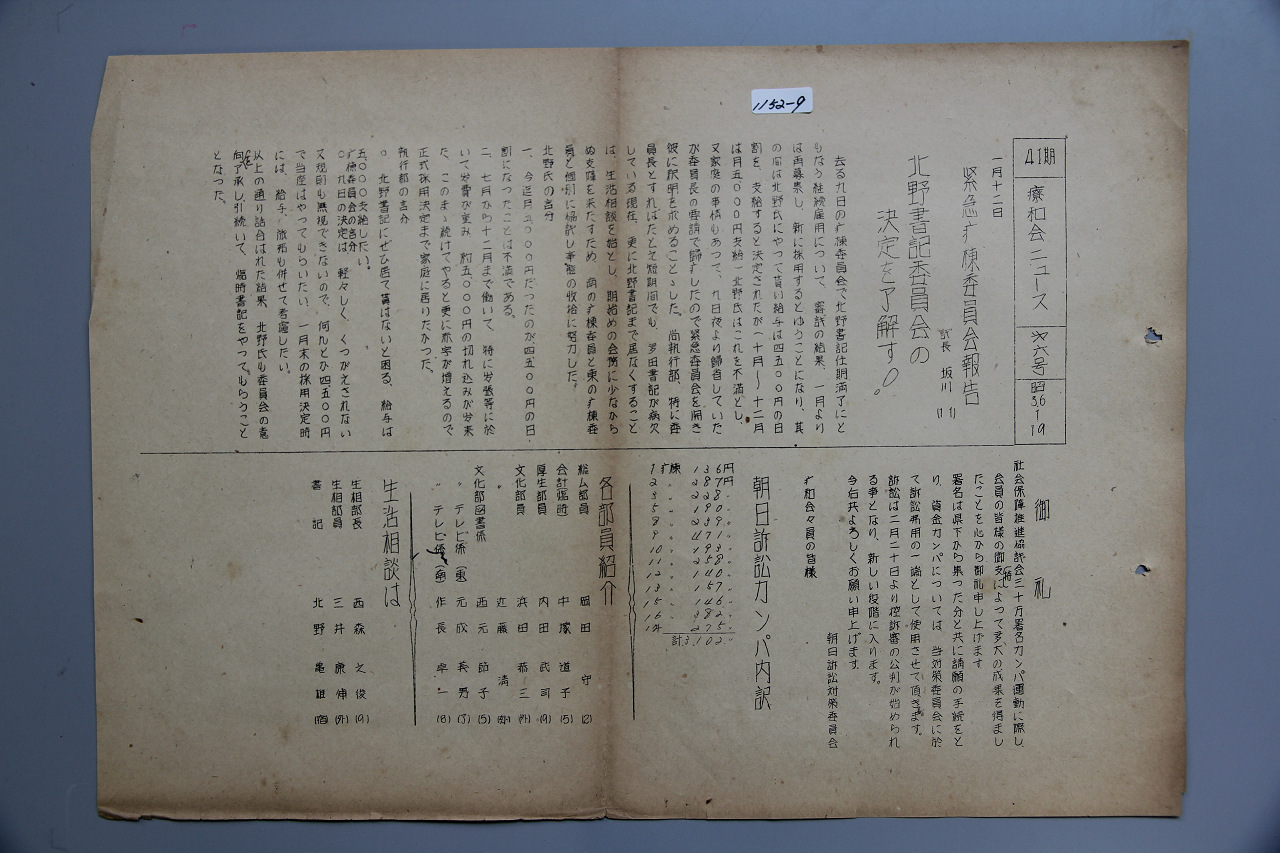 1152-9
41期
療和会ニュース
才六号
昭36 1 19
一月十二日
緊急疒棟委員会報告
議長 坂川
北野書記委員会の
決定を了解す。
去る九日の疒棟委員会で北野書記任期満了にと
もなう継続雇用について、審議の結果、一月より
は再募集し、新に採用するとゆうことになり、其
の間は北野氏にやって貰い給与は四五〇〇円の日
割を、支給すると決定されたが(十月〜十二月
は月五〇〇〇円支給)北野氏はこれを不満とし、
又家庭の事情もあって、九日夜より帰省していた
が委員長の要請で帰疒したので緊急委員会を開き
彼に釈明を求めることゝした。尚執行部、特に委
員長とすればたとえ短期間でも、多田書記が病欠
している現在、更に北野書記まで居なくすること
は、生活相談を始めとし、期始めの会務に少なから
ぬ支障を来たすため、南の疒棟委員と東の疒棟委
員と個別に協議し事態の收拾に努力した。
北野氏の言分
一、今迄月五〇〇〇円だったのが四五〇〇円の日
割になったことは不満である。
二、七月から十二月まで働いて、特に出張等に於
いて出費が重み 約五〇〇〇円の切れ込みが出来
た、このまゝ続けてやると更に赤字が増えるので
正式採用決定まで家庭に居りたかった。
執行部の言分
○ 北野書記にぜひ居て貰はないと困る、給与は
五〇〇〇支給したい。
疒棟委員会の言分
○ 九日の決定は 軽々しく くつがえされない
又規則も無視できないので、何んとか四五〇〇円
で当座はやってもらいたい、一月末の採用決定時
には、給与、旅費も併せて考慮したい。
以上の通り話合はれた結果、北野氏も委員会の意
向を了承し引続いて、臨時書記をやってもらうこと
となった。
御礼
社会保障推進協議会三十万署名カンパ運動に際し
会員の皆様の御支持によって多大の成果を得まし
たことを心から御礼申し上げます
署名は県下から集った分と共に請願の手続をと
り、資金カンパについては、当対策委員会に於
て訴訟費用の一端として使用させて頂きます。
訴訟は二月二十日より控訴審の公判が始められ
る事となり、新しい段階に入ります。
今后共よろしくお願い申上げます。
朝日訴訟対策委員会
疒和会々員の皆様
朝日訴訟カンパ内訳
1 疒棟 136円
2 〃 287円
3 〃 228 〃
5 〃 190 〃
8 〃 239 〃
9 〃 171 〃
10 〃 493 〃
11 〃 258 〃
12 〃 141 〃
13 〃 157 〃
15 〃 146 〃
16 〃 382 〃
19 〃 275 〃
計 3,102 〃
各部員紹介
総ム部員 岡田 守 (12)
会計臨時 中塚 道子 (15)
厚生部員 内田 武司 (19)
文化部員 浜田 恭三 (外)
〃 近藤 清 (外)
文化部図書係 西元 節子 (15)
〃 テレビ係(東) 元成 義男 (3)
〃 テレビ係(南) 作長 卓一 (8)
生活相談は
生相部長 西森 之俊 (19)
生相部員 三井 康伸 (外)
書記 北野 亀雄 (宿)